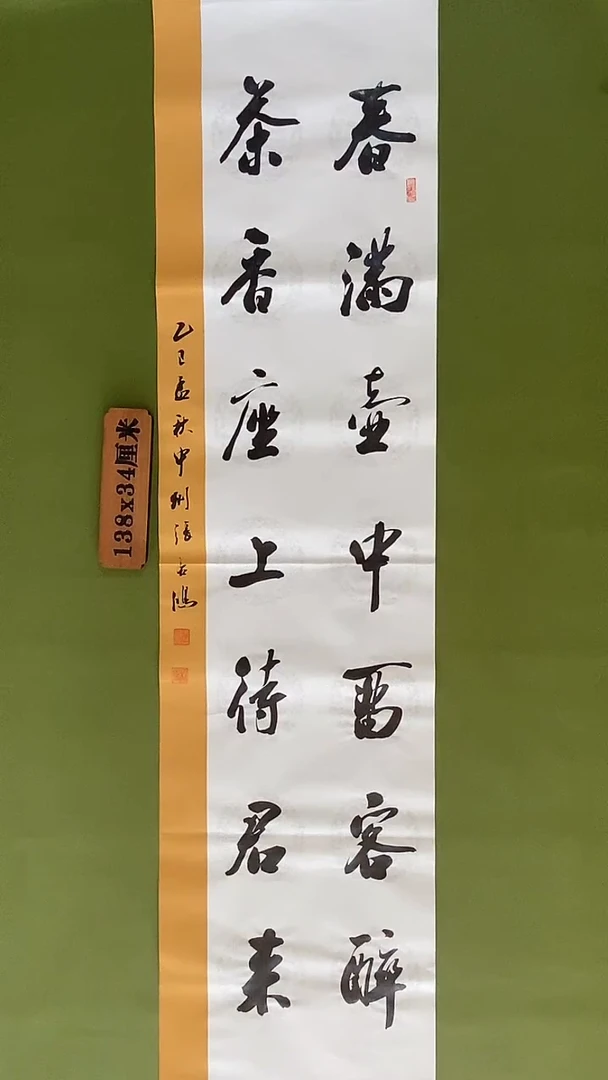 春满壶中留客醉
茶香座上待君来
乙巳孟秋中州張
138x34厘米